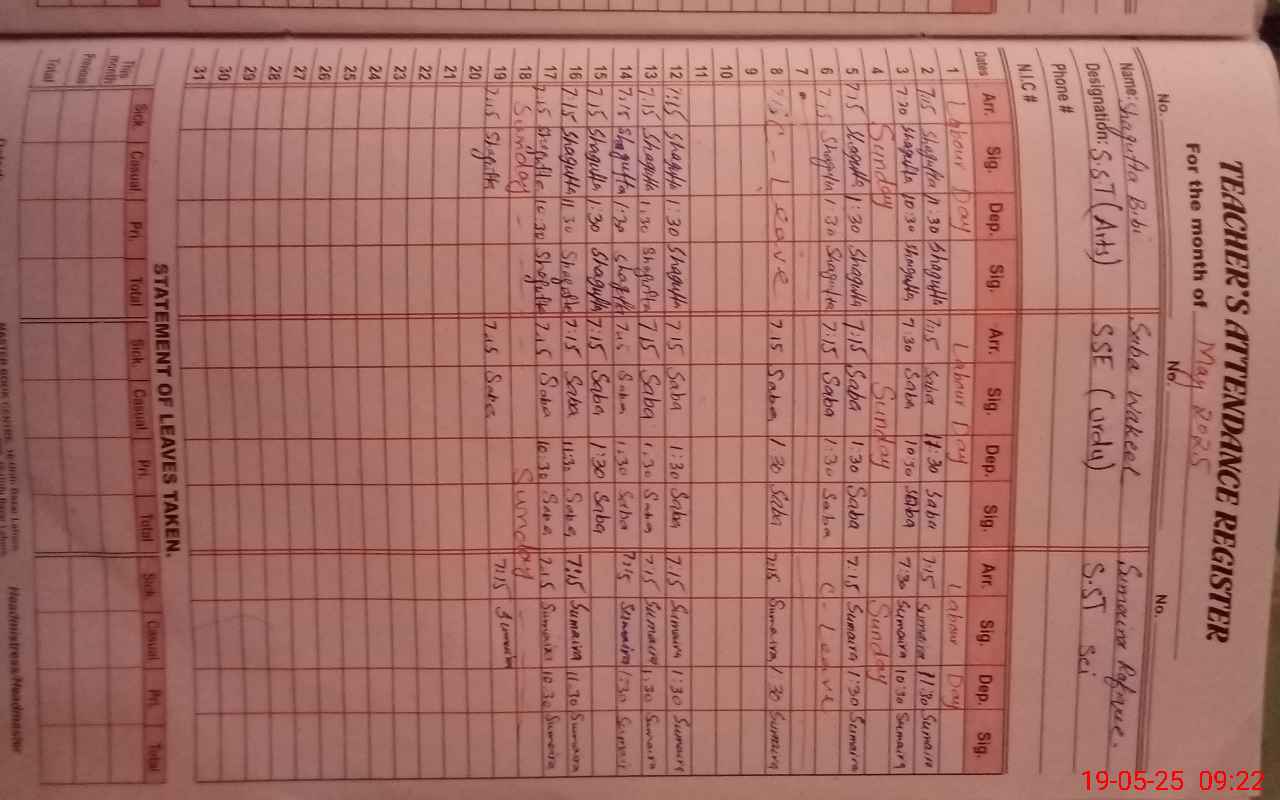 TEACHER'S ATTENDANCE REGISTER
For the month of May 2025
No. No. No.
Name: Shagufta Bibi Saba Wakeel Sumaira Rafique.
Designation: S.ST (Arts) SSE (Urdu) S.ST Sci
Phone #
N.I.C #
Dates Arr. Sig. Dep. Sig. Arr. Sig. Dep. Sig. Arr. Sig. Dep. Sig.
1 Labour Day Labour Day Labour Day
2 7:15 Shagufta 11:30 Shagufta 7:15 Saba 11:30 Saba 7:15 Sumaira 11:30 Sumaira
3 7:30 Shagufta 10:30 Shagufta 7:30 Saba 10:30 Saba 7:30 Sumaira 10:30 Sumaira
4 Sunday Sunday Sunday
5 7:15 Shagufta 1:30 Shagufta 7:15 Saba 1:30 Saba 7:15 Sumaira 1:30 Sumaira
6 7:15 Shagufta 1:30 Shagufta 7:15 Saba 1:30 Saba C-Leave
7
8 C-Leave 7:15 Saba 1:30 Saba 7:15 Sumaira 1:30 Sumaira
9
10
11
12 7:15 Shagufta 1:30 Shagufta 7:15 Saba 1:30 Saba 7:15 Sumaira 1:30 Sumaira
13 7:15 Shagufta 1:30 Shagufta 7:15 Saba 1:30 Saba 7:15 Sumaira 1:30 Sumaira
14 7:15 Shagufta 1:30 Shagufta 7:15 Saba 1:30 Saba 7:15 Sumaira 1:30 Sumaira
15 7:15 Shagufta 1:30 Shagufta 7:15 Saba 1:30 Saba
16 7:15 Shagufta 11:30 Shagufta 7:15 Saba 11:30 Saba 7:15 Sumaira 11:30 Sumaira
17 7:15 Shagufta 10:30 Shagufta 7:15 Saba 10:30 Saba 7:15 Sumaira 10:30 Sumaira
18 Sunday - - Sunday - -
19 7:15 Shagufta 7:15 Saba 7:15 Sumaira
20
21
22
23
24
25
26
27
28
29
30
31
STATEMENT OF LEAVES TAKEN.
Sick Casual Pri. Total Sick. Casual Pri. Total Sick Casual Pri. Total
This month
Previous
Total
Headmistress/Headmaster
19-05-25 09:22